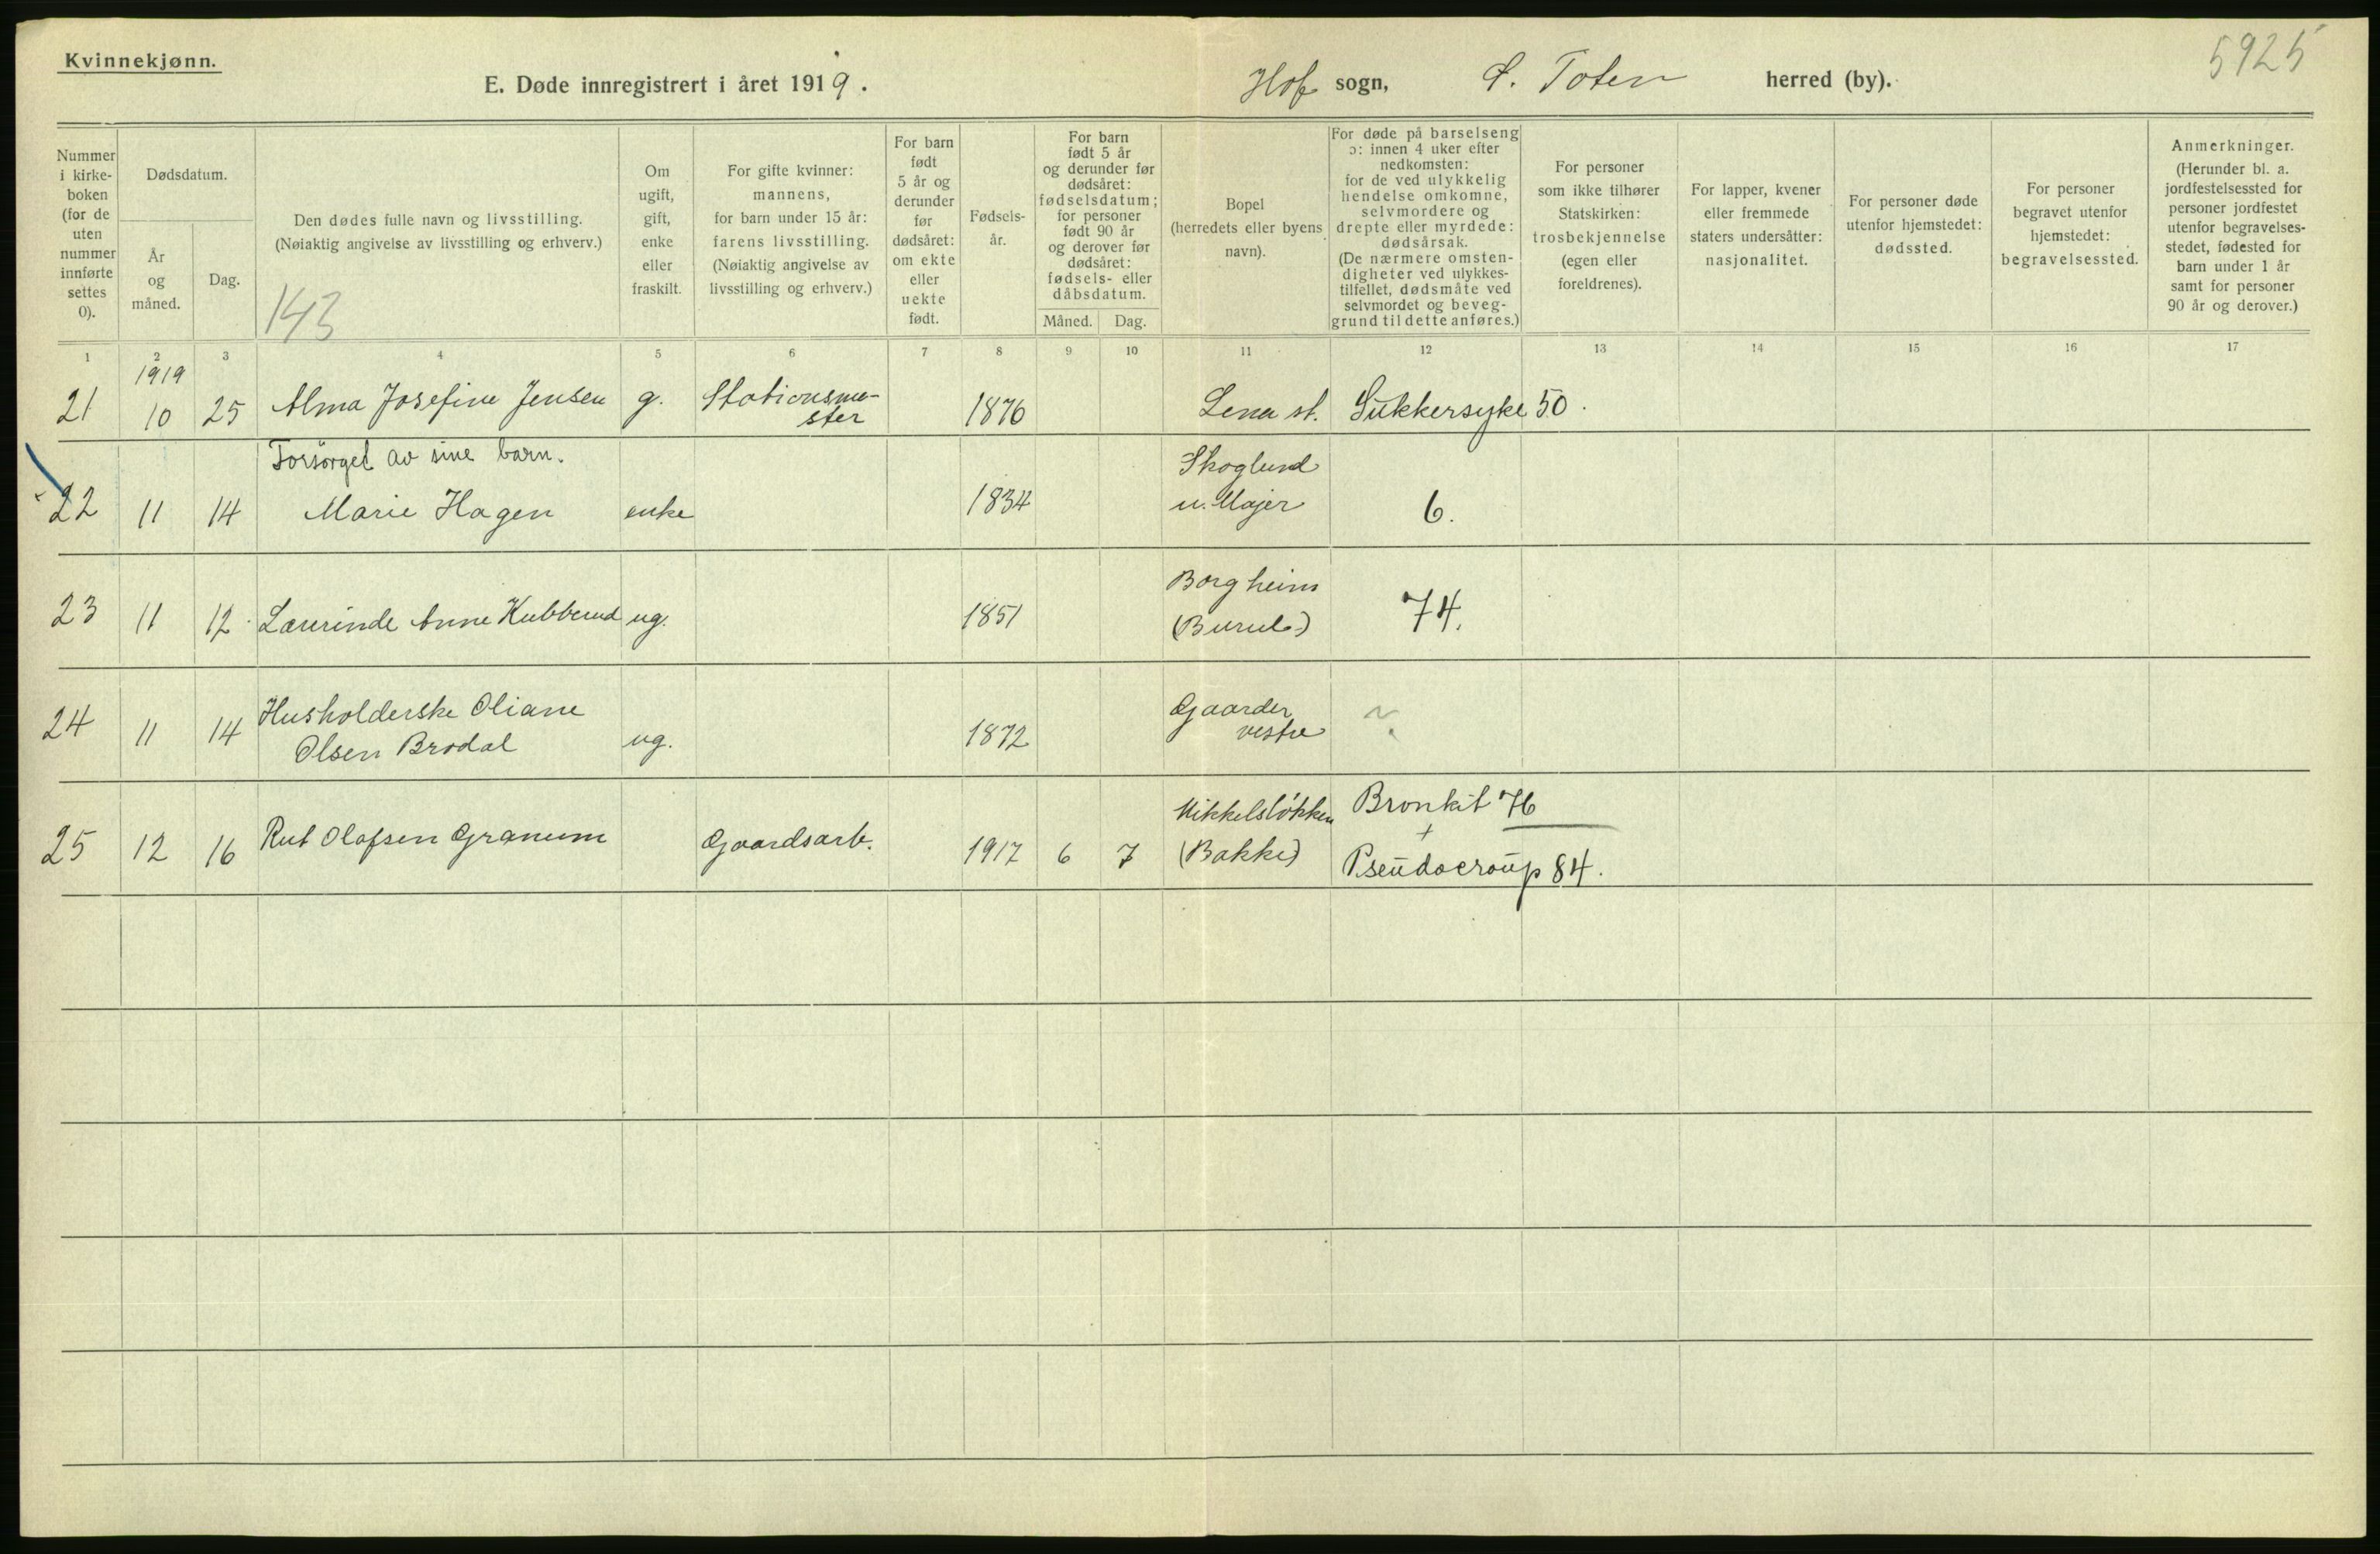 Kvinnekjønn.
5925
E. Døde innregistrert i året 1919.
Hof sogn, Ø. Toten herred (by).
Nummer i kirke-boken (for de uten nummer innførte settes 0).
Dødsdatum.
År og måned.
Dag.
Den dødes fulle navn og livsstilling.
(Nøiaktig angivelse av livsstilling og erhverv.)
143
Om ugift, gift, enke eller fraskilt.
For gifte kvinner: mannens, for barn under 15 år: farens livsstilling. (Nøiaktig angivelse av livsstilling og erhverv.)
For barn født 5 år og derunder før dødsåret: om ekte eller uekte født.
Fødsels-år.
For barn født 5 år og derunder før dødsåret: fødselsdatum; for personer født 90 år og derover før dødsåret: fødsels- eller dåbsdatum.
Måned. Dag.
Bopel (herredets eller byens navn).
For døde på barselseng ɔ: innen 4 uker efter nedkomsten: for de ved ulykkelig hendelse omkomne, selvmordere og drepte eller myrdede: dødsårsak. (De nærmere omsten-digheter ved ulykkes-tilfellet, dødsmåte ved selvmordet og beveg-grund til dette anføres.)
For personer som ikke tilhører Statskirken: trosbekjennelse (egen eller foreldrenes).
For lapper, kvener eller fremmede staters undersåtter: nasjonalitet.
For personer døde utenfor hjemstedet: dødssted.
For personer begravet utenfor hjemstedet: begravelsessted.
Anmerkninger. (Herunder bl. a. jordfestelsessted for personer jordfestet utenfor begravelses-stedet, fødested for barn under 1 år samt for personer 90 år og derover.)
1 2 3 4 5 6 7 8 9 10 11 12 13 14 15 16 17
1919
21 10 25 Alma Josefine Jensen g. Stationsme-ster 1876 Lena st. Sukkersyke 50.
Forsørget av sine barn.
22 11 14 Marie Hagen enke 1834 Skoglund u. Majer 6.
23 11 12 Lærerinde Anne Kubberud ug. 1851 Borgheim (Burul) 74.
24 11 14 Husholderske Oliane Olsen Brodal ug. 1872 Gaarder vestre
25 12 16 Rut Olafsen Granum Gaardsarb. 1917 6 7 Mikkelsløkken (Bakke) Bronkit 76
+
Pseudocroup 84.